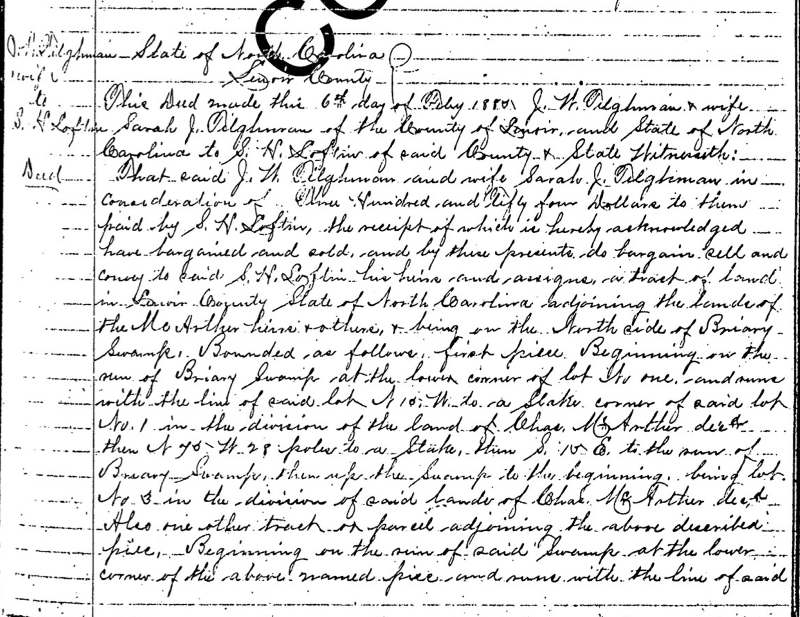 J. W. Tilghman State of North Carolina
wife Lenoir County
to This Deed made this 6th day of Feby 1880, J. W. Tilghman & wife
S. H. Loftin Sarah J. Tilghman of the County of Lenoir, and State of North
Carolina to S. H. Loftin of said County & State Witnesseth:
Deed That said J. W. Tilghman and wife Sarah J. Tilghman in
consideration of Hundred and fifty four Dollars to them
paid by S. H. Loftin, the receipt of which is hereby acknowledged
have bargained and sold, and by these presents do bargain sell and
convey to said S. H. Loftin his heirs and assigns, a tract of land
in Lenoir County State of North Carolina adjoining the lands of
the McArther heirs & others, & being on the North side of Briary
Swamp, Bounded as follows, first piece Beginning on the
run of Briary Swamp at the lower corner of lot No one, and runs
with the line of said lot N 15, W. to a Stake corner of said lot
No. 1 in the division of the land of Chas. McArther decd
then N 75 W. 28 poles to a Stake, then S. 15 E. to the run of
Briary Swamp, then up the Swamp to the beginning, being lot
No 3 in the division of said lands of Chas. McArther decd
Also one other tract or parcel adjoining the above discribed
piece, Beginning on the run of said Swamp at the lower
corner of the above named piece and runs with the line of said